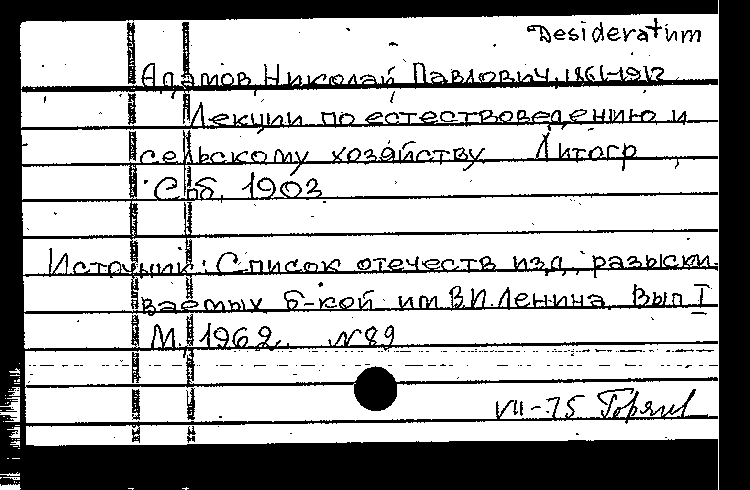 Desideratum
Адамов, Николай Павлович, 1861-1912
Лекции по естествоведению и
сельскому хозяйству. Литогр.,
Спб, 1903
Источник: Список отечеств изд, разыски
ваемых б-кой им В.И. Ленина. Вып I
М, 1962. №89
VII-75